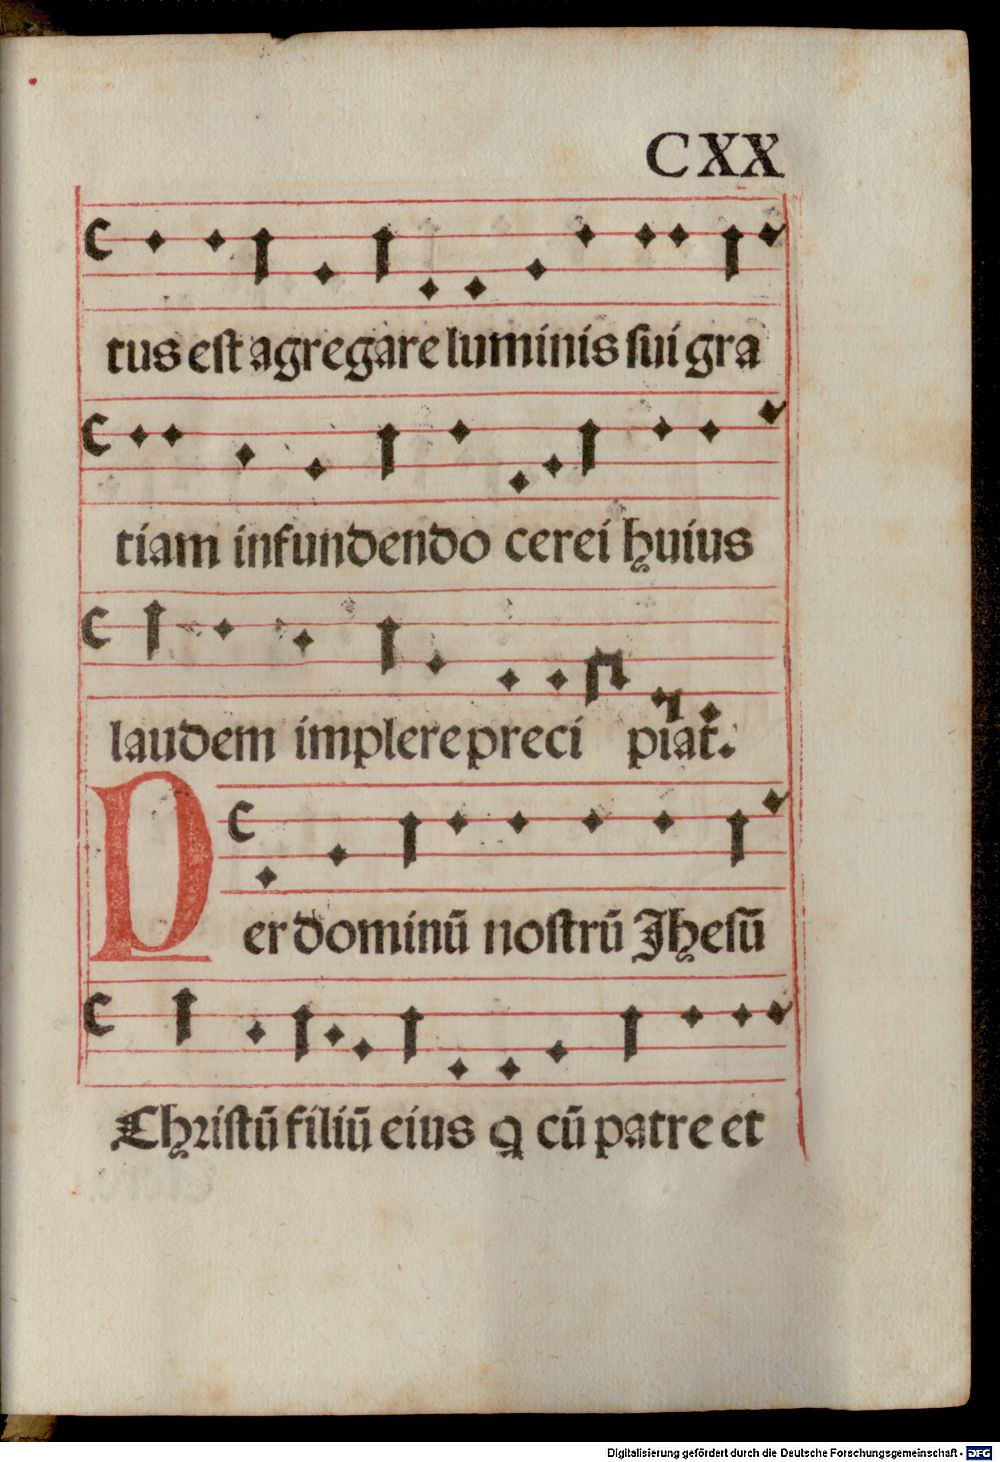 CXX
tus eſt agregare luminis ſui gra
tiam infundendo cerei huius
laudem implere preci piat.
Per dominū noſtrū Jheſū
Chriſtū filiū eius q cū patre et
Digitalisierung gefördert durch die Deutsche Forschungsgemeinschaft - DFG